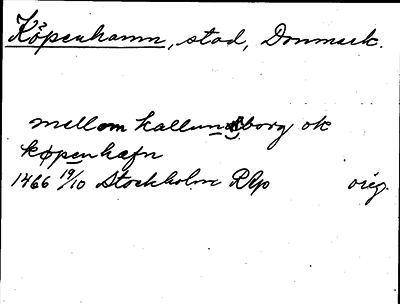 Köpenhamn, stad, Danmark.
mellom kallundborg ok
køpenhafn
1466 19/10 Stockholm RAp orig.